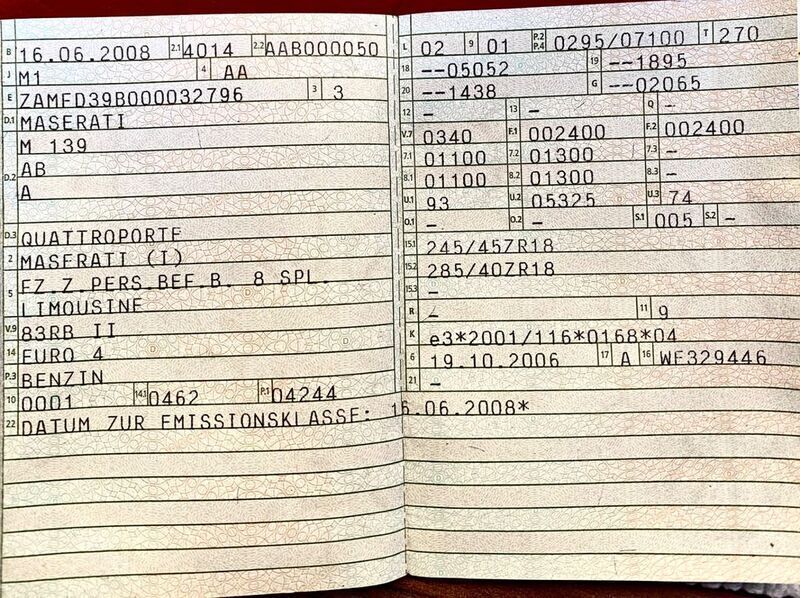 B 16.06.2008 2.1 4014 2.2 AAB000050
J M1 4 AA
E ZAMFD39B000032796 3 3
D.1 MASERATI
M 139
D.2 AB
A
D.3 QUATTROPORTE
2 MASERATI (I)
5 FZ.Z.PERS.BEF.B. 8 SPL.
LIMOUSINE
V.9 83RB II
14 EURO 4
P.3 BENZIN
10 0001 14.1 0462 P.1 04244
22 DATUM ZUR EMISSIONSKLASSE: 16.06.2008*
L 02 9 01 P.2 P.4 0295/07100 T 270
18 --05052 19 --1895
20 --1438 G --02065
12 - 13 - Q -
V.7 0340 F.1 002400 F.2 002400
7.1 01100 7.2 01300 7.3 -
8.1 01100 8.2 01300 8.3 -
U.1 93 U.2 05325 U.3 74
O.1 - O.2 - S.1 005 S.2 -
15.1 245/45ZR18
15.2 285/40ZR18
15.3 -
R - 11 9
K e3*2001/116*0168*04
6 19.10.2006 17 A 16 WF329446
21 -